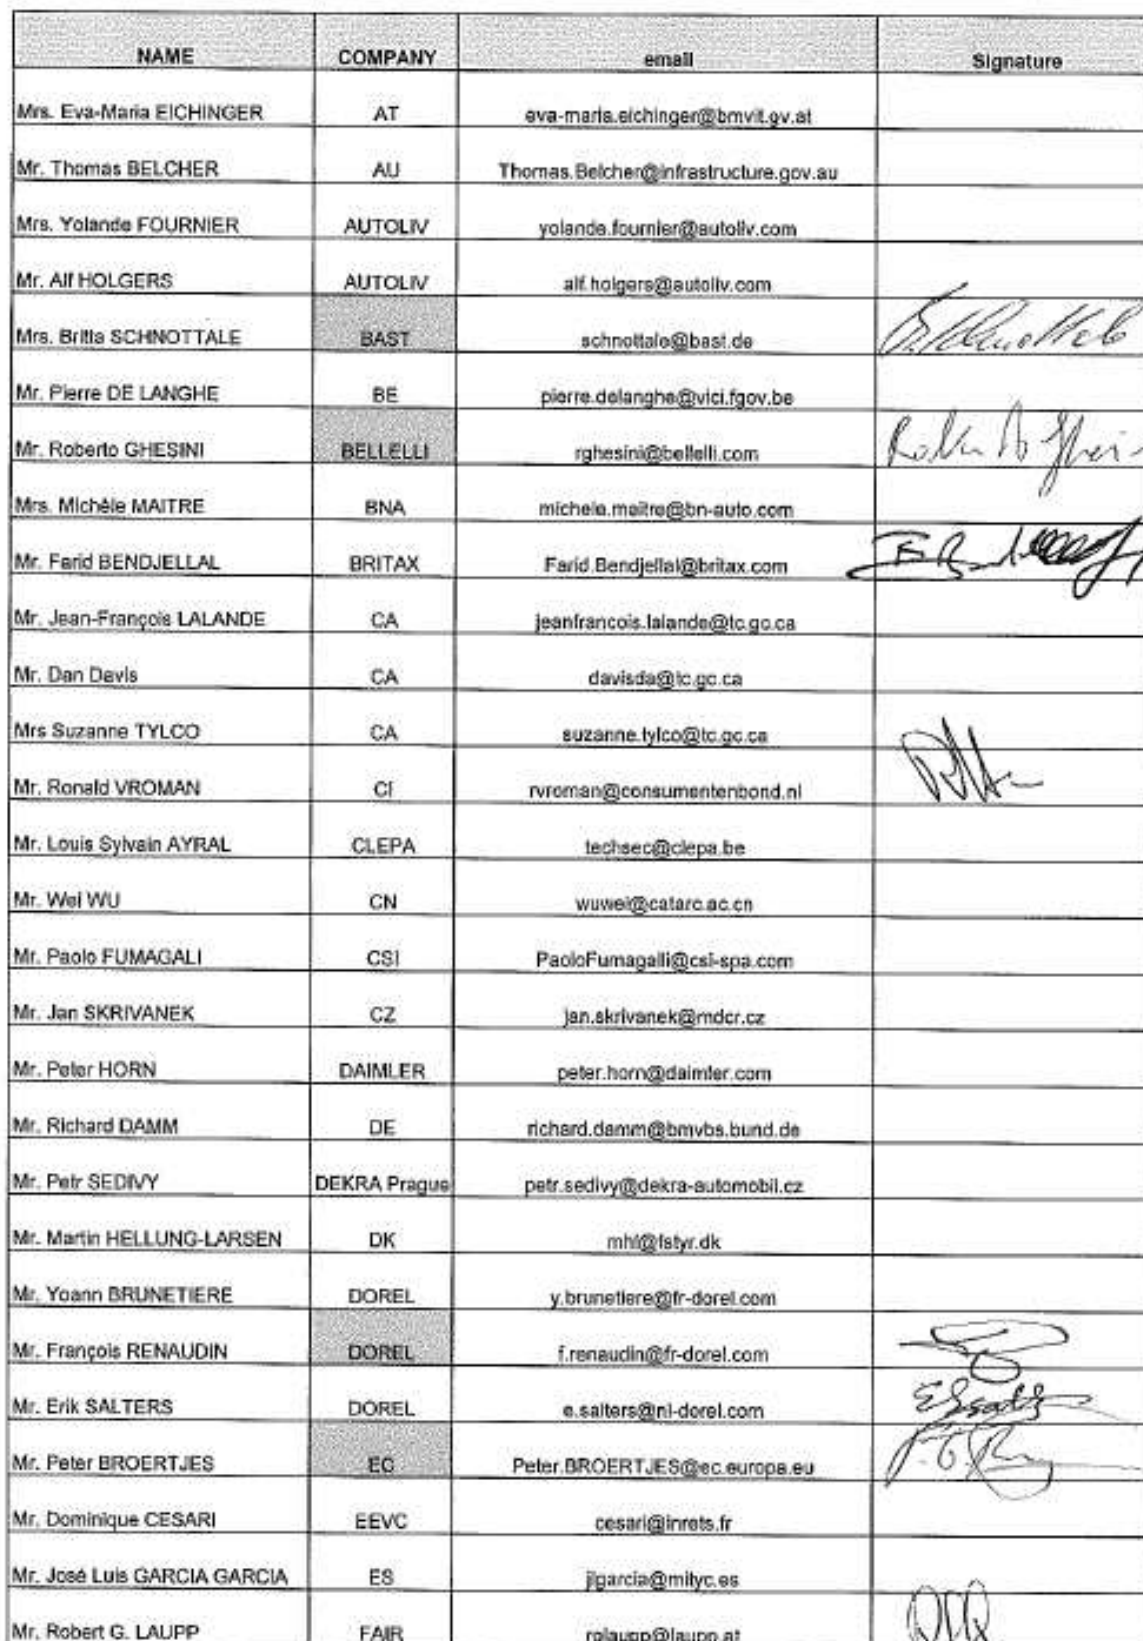 NAME COMPANY email Signature
Mrs. Eva-Maria EICHINGER AT eva-maria.eichinger@bmvit.gv.at
Mr. Thomas BELCHER AU Thomas.Belcher@infrastructure.gov.au
Mrs. Yolande FOURNIER AUTOLIV yolande.fournier@autoliv.com
Mr. Alf HOLGERS AUTOLIV alf.holgers@autoliv.com
Mrs. Britta SCHNOTTALE BAST schnottale@bast.de
Mr. Pierre DE LANGHE BE pierre.delanghe@vici.fgov.be
Mr. Roberto GHESINI BELLELLI rghesini@bellelli.com
Mrs. Michèle MAITRE BNA michele.maitre@bn-auto.com
Mr. Farid BENDJELLAL BRITAX Farid.Bendjellal@britax.com
Mr. Jean-François LALANDE CA jeanfrancois.lalande@tc.gc.ca
Mr. Dan Davis CA davisda@tc.gc.ca
Mrs Suzanne TYLCO CA suzanne.tylco@tc.gc.ca
Mr. Ronald VROMAN CI rvroman@consumentenbond.nl
Mr. Louis Sylvain AYRAL CLEPA techsec@clepa.be
Mr. Wei WU CN wuwei@catarc.ac.cn
Mr. Paolo FUMAGALI CSI PaoloFumagalli@csi-spa.com
Mr. Jan SKRIVANEK CZ jan.skrivanek@mdcr.cz
Mr. Peter HORN DAIMLER peter.horn@daimler.com
Mr. Richard DAMM DE richard.damm@bmvbs.bund.de
Mr. Petr SEDIVY DEKRA Prague petr.sedivy@dekra-automobil.cz
Mr. Martin HELLUNG-LARSEN DK mhl@fstyr.dk
Mr. Yoann BRUNETIERE DOREL y.brunetiere@fr-dorel.com
Mr. François RENAUDIN DOREL f.renaudin@fr-dorel.com
Mr. Erik SALTERS DOREL e.salters@nl-dorel.com
Mr. Peter BROERTJES EC Peter.BROERTJES@ec.europa.eu
Mr. Dominique CESARI EEVC cesari@inrets.fr
Mr. José Luis GARCIA GARCIA ES jlgarcia@mityc.es
Mr. Robert G. LAUPP FAIR rglaupp@laupp.at